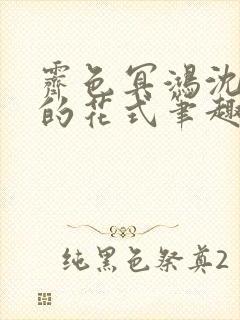 霁色冥鸿沈
的花式笔趣
纯黑色祭奠2